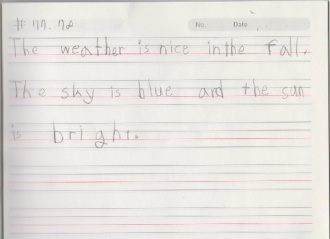 # 77. 78
No. Date
The weather is nice in the fall.
The sky is blue and the sun
is bright.